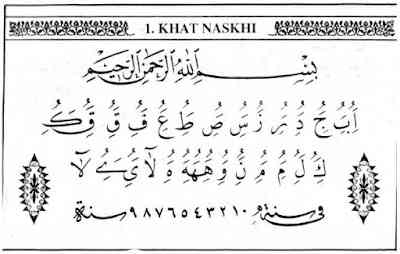 1. KHAT NASKHI
بِسْمِ اللهِ الرَّحْمٰنِ الرَّحِيْمِ
أ ب ج د ر ز س ص ط ع ف ق ق ك
ك ل م م ن و ههه ه لا ي ے لا
في سنة ٩٨٧٦٥٤٣٢١٠ سنة